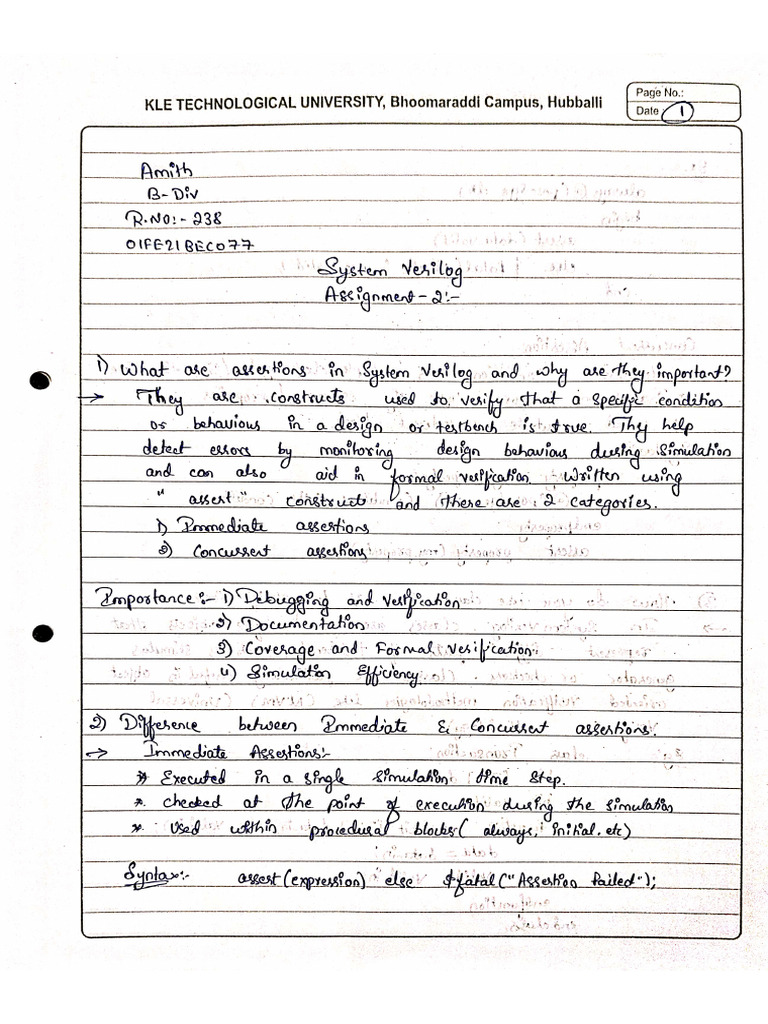 KLE TECHNOLOGICAL UNIVERSITY, Bhoomaraddi Campus, Hubballi
Page No.:
Date 1
Amith
B-Div
R.NO:- 238
01FE21BEC077
System Verilog
Assignment - 2:-
1) What are assertions in System Verilog and why are they important?
→ They are constructs used to verify that a specific condition
or behaviour in a design or testbench is true. Thy help
detect errors by monitoring design behaviour during simulation
and can also aid in formal verification. Written using
"assert" construct and there are 2 categories.
1) Immediate assertions
2) Concurrent assertions
Importance:- 1) Debugging and verification
2) Documentation
3) Coverage and Formal Verification
4) Simulation Efficiency
2) Difference between Immediate & Concurrent assertions.
→ Immediate Assertions:-
* Executed in a single simulation time step.
* checked at the point of execution during the simulation
* Used within procedural blocks (always, initial, etc)
Syntax:- assert(expression) else $fatal("Assertion failed");